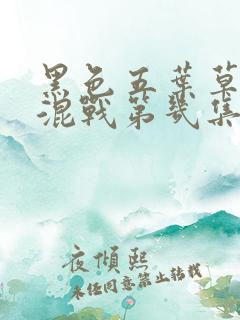 黑色五葉草
混戰第幾集
夜傾熙
未任同意禁止转載